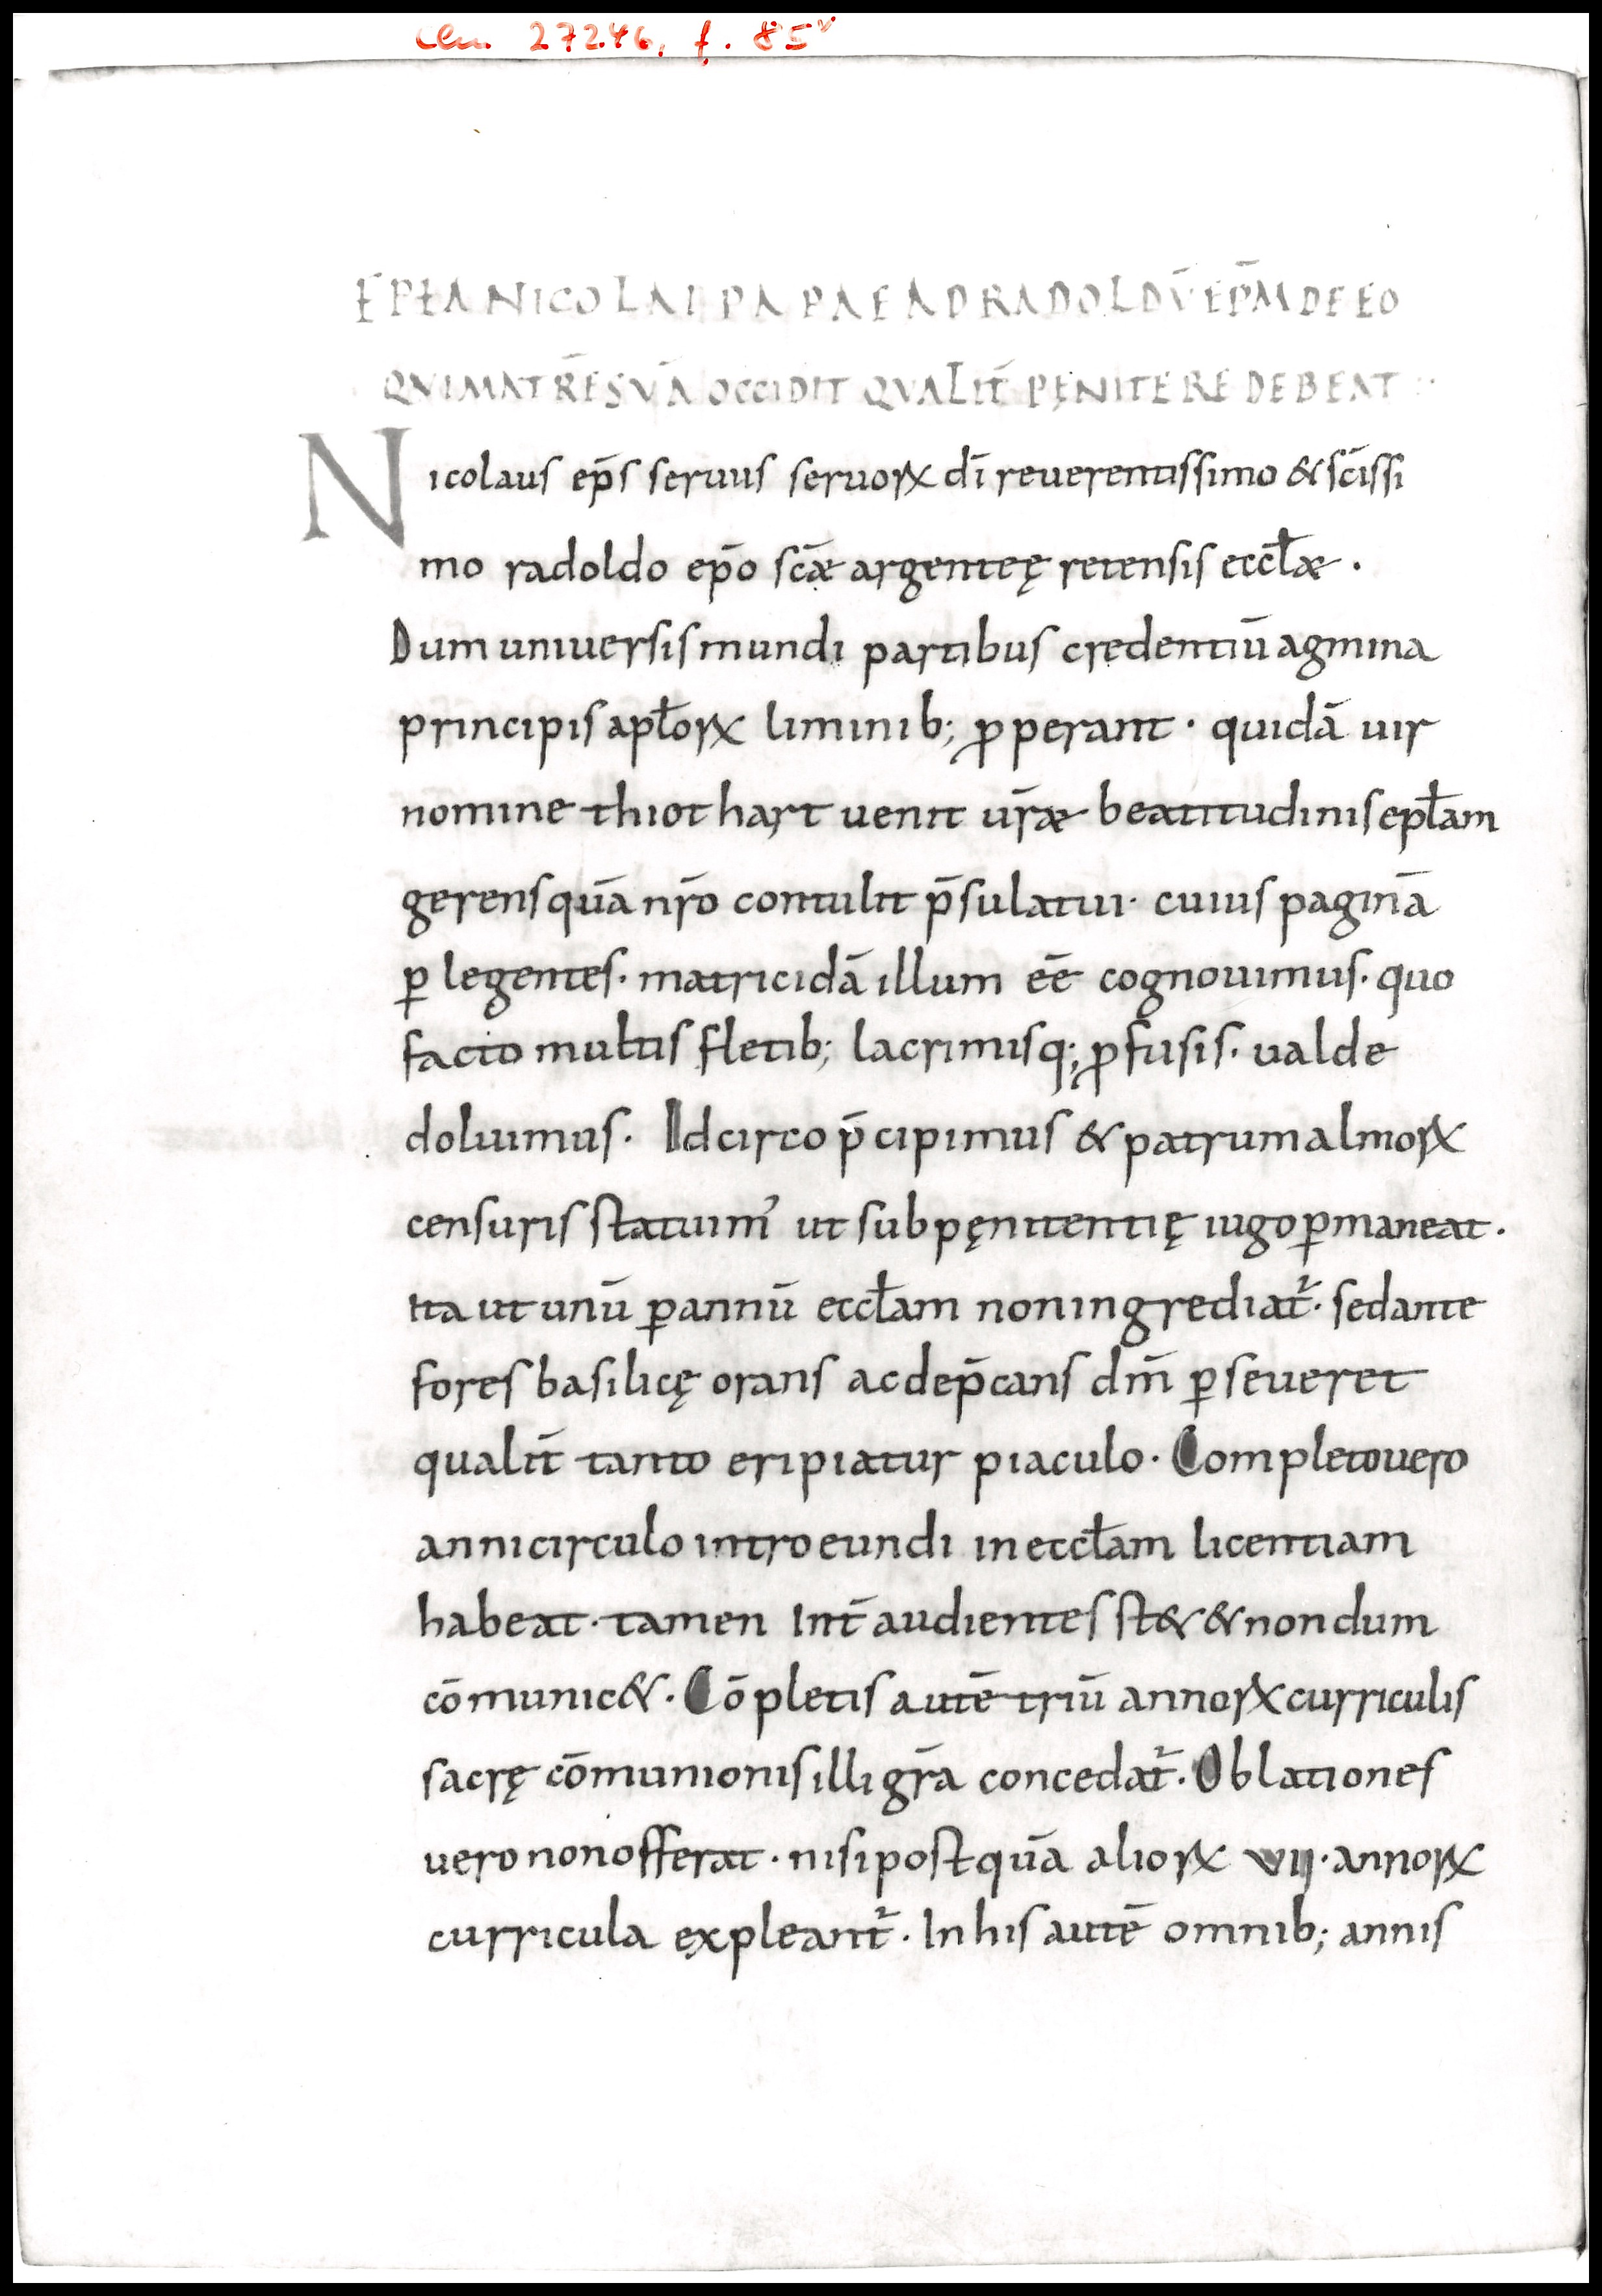 clm. 27246, f. 85v
EPƗA NICOLAI PAPAE AD RADOLDV̄ EP̄M DE EO
QVI MATRĒ SVĀ OCCIDIT QVALIT̄ PĘNITERE DEBEAT
Nicolaus ep̄s seruus seruoꝝ dī reuerentissimo & sc̄issi
mo radoldo ep̄o sc̄ae argenteę retensis eccƚae·
Dum uniuersis mundi partibus credentiū agmina
principis apƚoꝝ liminib; ꝓperant· quidā uir
nomine thiothart uenit ur̄ae beatitudinis epƚam
gerens quā nr̄o contulit p̄sulatui· cuius paginā
ꝑlegentes· matricidā illum ee̅ cognouimus· quo
facto multis fletib; lacrimisq; ꝓfusis· ualde
doluimus· Idcirco p̄cipimus & patrum almoꝝ
censuris statuim᾽ ut sub pęnitentię iugo ꝑmaneat·
ita ut unū ꝑ annū eccƚam non ingrediat᷑· sed ante
fores basilicę orans ac dep̄cans dm̄ ꝑseueret
qualit̄ tanto eripiatur piaculo· Completo uero
anni circulo introeundi in eccƚam licentiam
habeat· tamen int̄ audientes st& & nondum
cōmunic&· Cōpletis autē triū annoꝝ curriculis
sacrę cōmunionis illi gr̄a concedat᷑· Oblationes
uero non offerat· nisi postquā alioꝝ vii· annoꝝ
curricula expleant᷑· In his autē omnib; annis